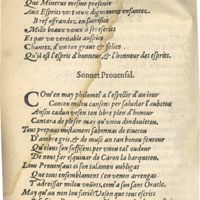 Que Minerve mesme presente
Aux Esprits vertueux dignement enfantez.
Bref offrandez, en sacrifice
Mille beaux voeux à ses esprits
Et par un veritable auspice
Chantez, d'un ton grave & felice
Qu'il est l'esprit d'honneur, & l'honneur des esprits.
Sonnet Prouensal.
COm'en may philomel a l'espeller d'au iour
Cantou milou cansons per saludar l'aubetou
Ansin cadun vesen ton libre plen d'honour
Cantara de plaser may qu'vnou dindouletou,
Tous prepaus
sabonnas de
D'ambre gris, & de musc an tan bonou semour
Qu'elous son suffisens per venou tal oudour
De nous far esquiuar de Caron la barquetou.
Lous Prouensaus si son talamen oubligas
Que tous ensemblamen s'en venon arrengas
T'adreissar milou vœus, com'a son sant Oracle.
May qu'au non lou
sen que tous escrits